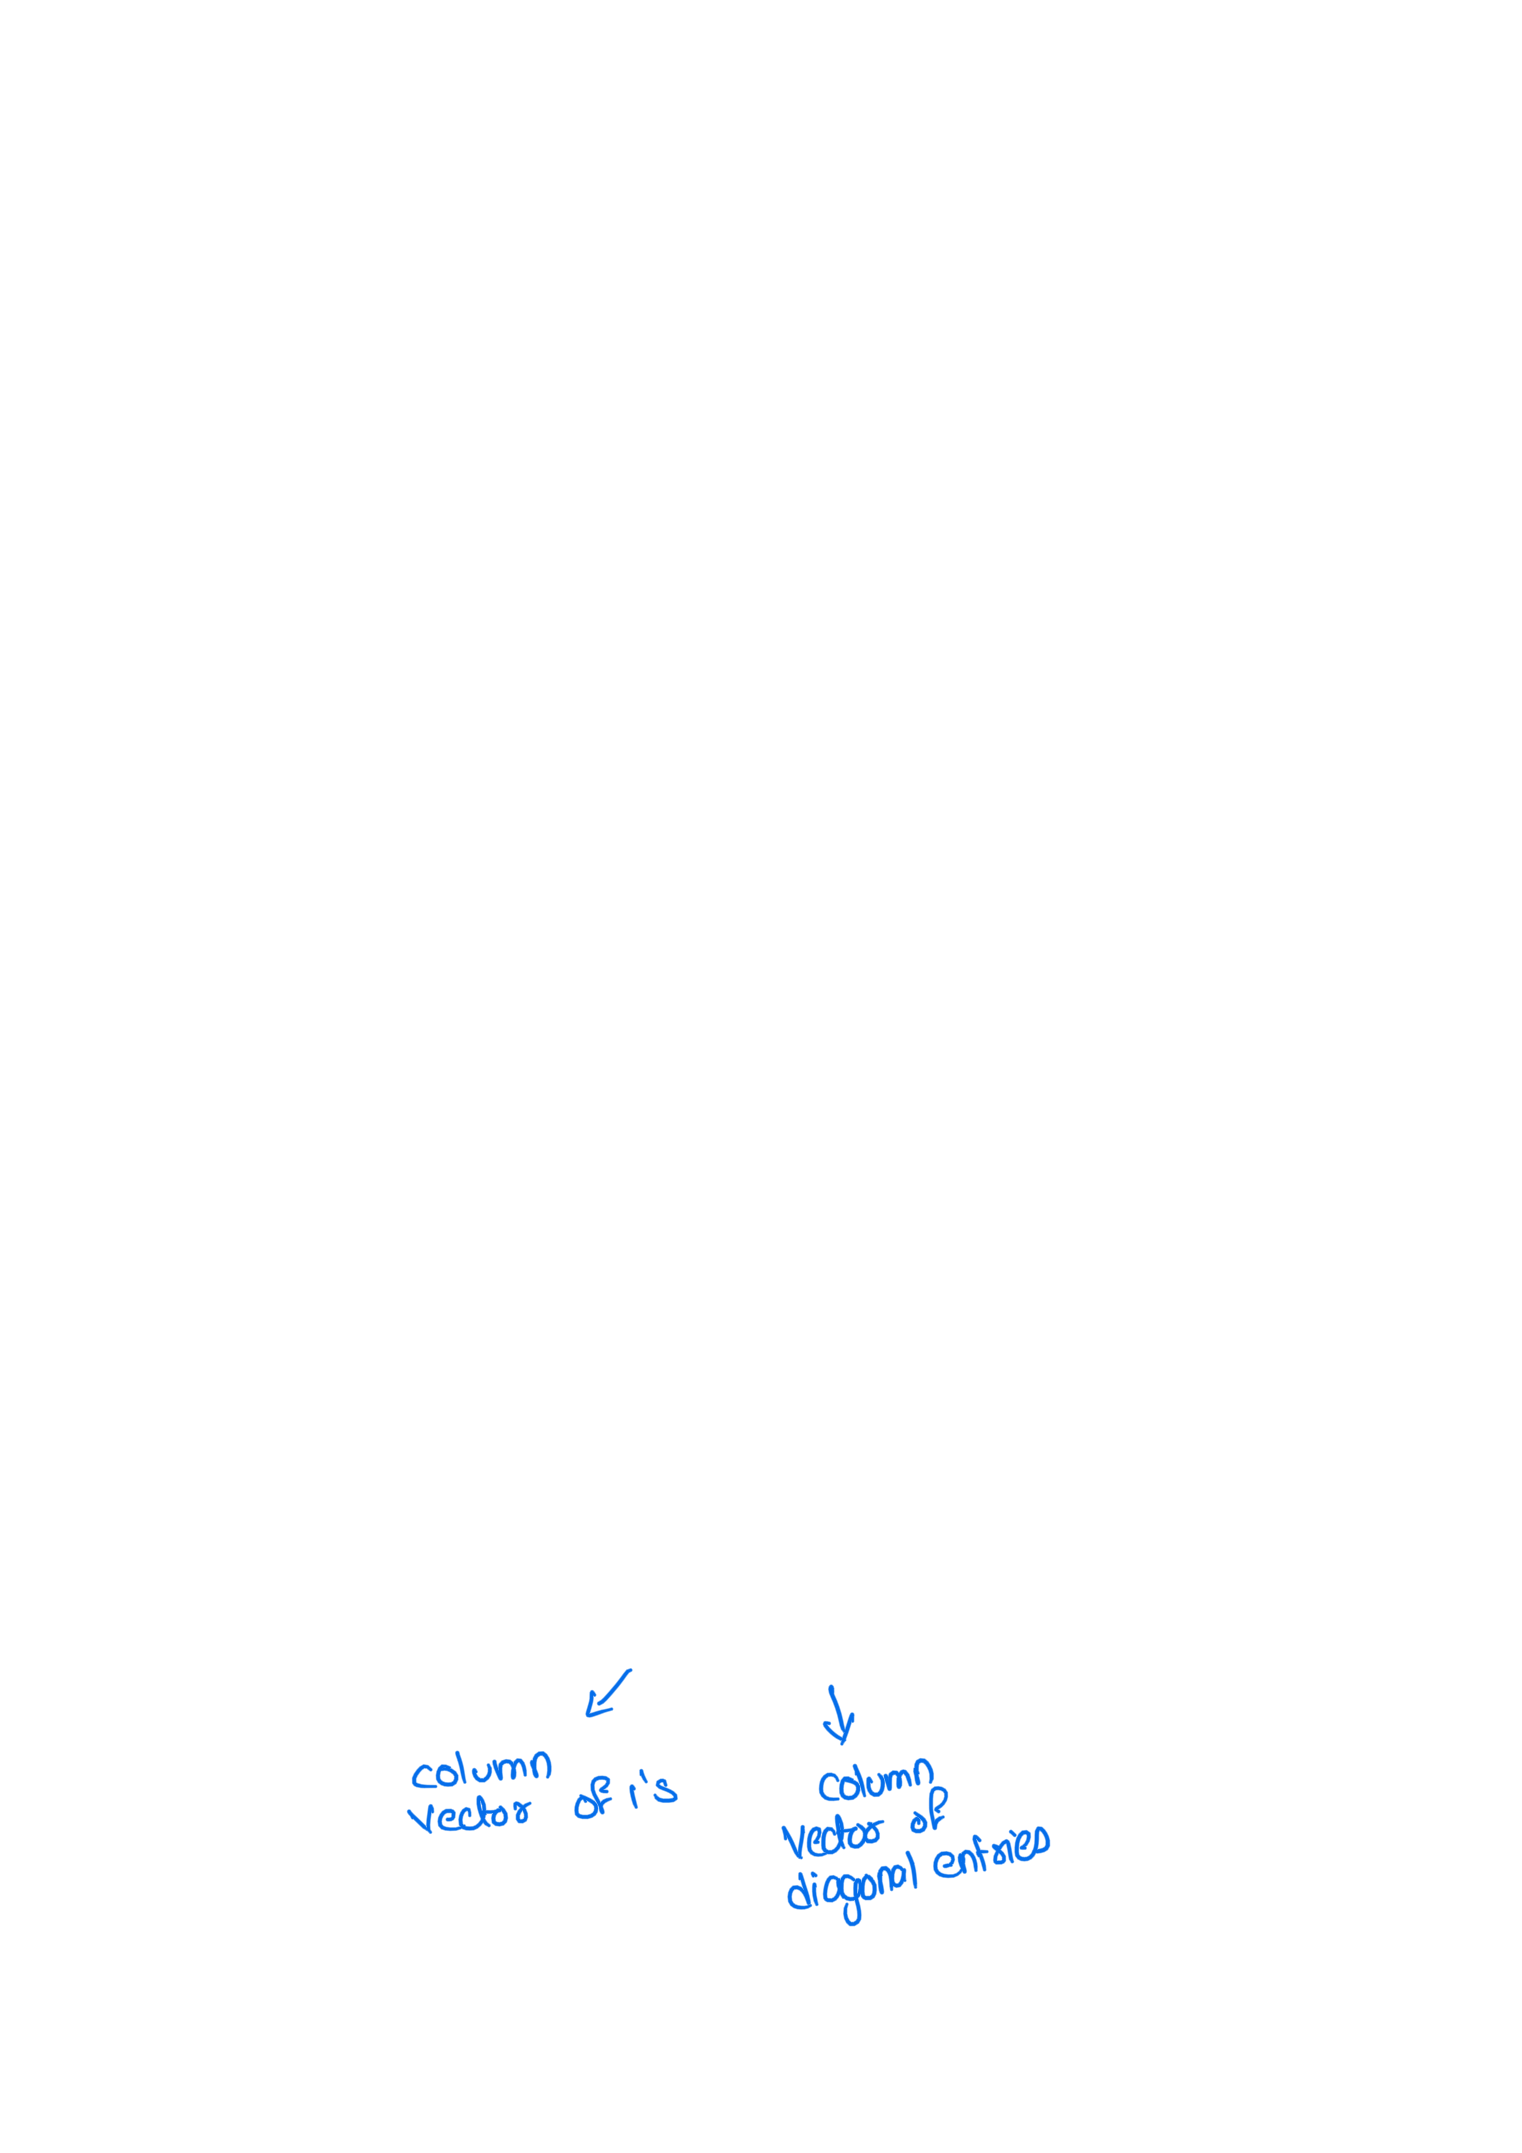 column
vector of 1's
column
vector of
diagonal entries